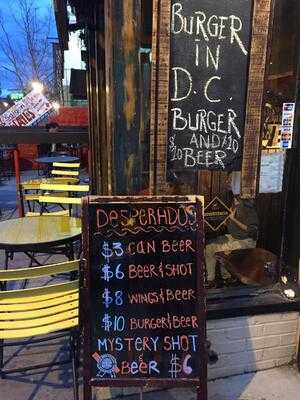 BURGER
IN
D.C.
BURGER
AND $10
$20 BEER
DESPERADOS
$3 CAN BEER
$6 BEER & SHOT
$8 WINGS & BEER
$10 BURGER & BEER
MYSTERY SHOT
& BEER $6